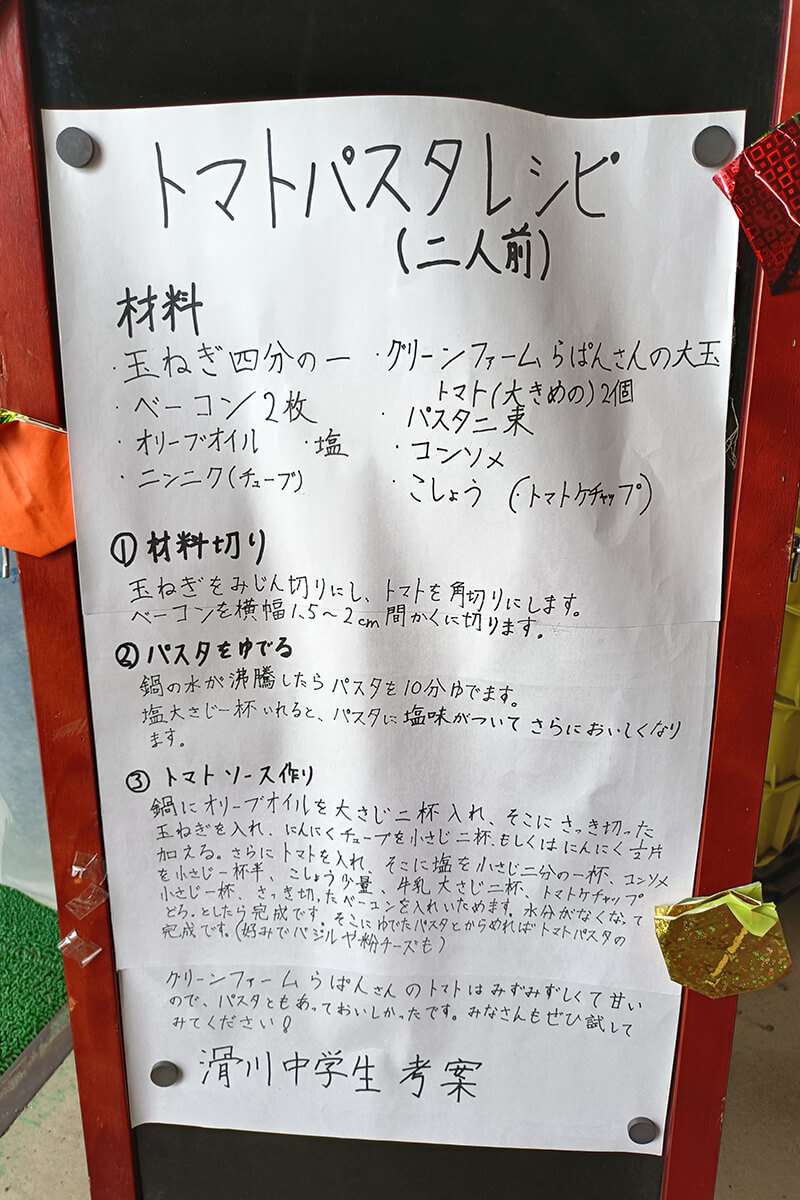 トマトパスタレシピ
(二人前)
材料
・玉ねぎ四分の一
・ベーコン2枚
・オリーブオイル ・塩
・ニンニク(チューブ)
・グリーンファームらぱんさんの大玉
トマト(大きめの)2個
・パスタ二束
・コンソメ
・こしょう (・トマトケチャップ)
①材料切り
玉ねぎをみじん切りにし、トマトを角切りにします。
ベーコンを横幅1.5～2cm間かくに切ります。
②パスタをゆでる
鍋の水が沸騰したらパスタを10分ゆでます。
塩大さじ一杯いれると、パスタに塩味がついてさらにおいしくなり
ます。
③トマトソース作り
鍋にオリーブオイルを大さじ二杯入れ、そこにさっき切った
玉ねぎを入れ、にんにくチューブを小さじ二杯、もしくはにんにく1/2片
加える。さらにトマトを入れ、そこに塩を小さじ二分の一杯、コンソメ
を小さじ一杯半、こしょう少量、牛乳大さじ二杯、トマトケチャップ
小さじ一杯、さっき切ったベーコンを入れいためます。水分がなくなって
どろっとしたら完成です。そこにゆでたパスタとからめればトマトパスタの
完成です。(好みでバジルや粉チーズも)
グリーンファームらぱんさんのトマトはみずみずしくて甘い
ので、パスタともあっておいしかったです。みなさんもぜひ試して
みてください!
滑川中学生 考案